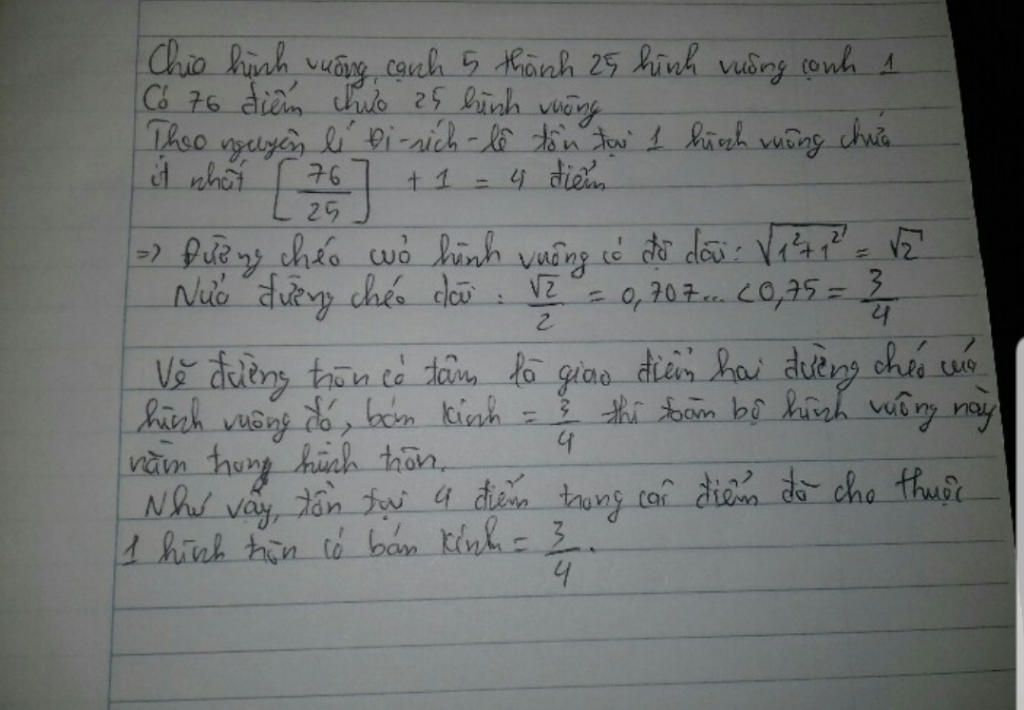 Chia hình vuông cạnh 5 thành 25 hình vuông cạnh 1
Có 76 điểm chứa 25 hình vuông
Theo nguyên lí Đi-rích-lê tồn tại 1 hình vuông chứa
ít nhất [76/25] + 1 = 4 điểm
=> Đường chéo của hình vuông có độ dài: √(1²+1²) = √2
Nửa đường chéo dài: √2/2 = 0,707... < 0,75 = 3/4
Vẽ đường tròn có tâm là giao điểm hai đường chéo của
hình vuông đó, bán kính = 3/4 thì toàn bộ hình vuông này
nằm trong hình tròn.
Như vậy, tồn tại 4 điểm trong các điểm đã cho thuộc
1 hình tròn có bán kính = 3/4.